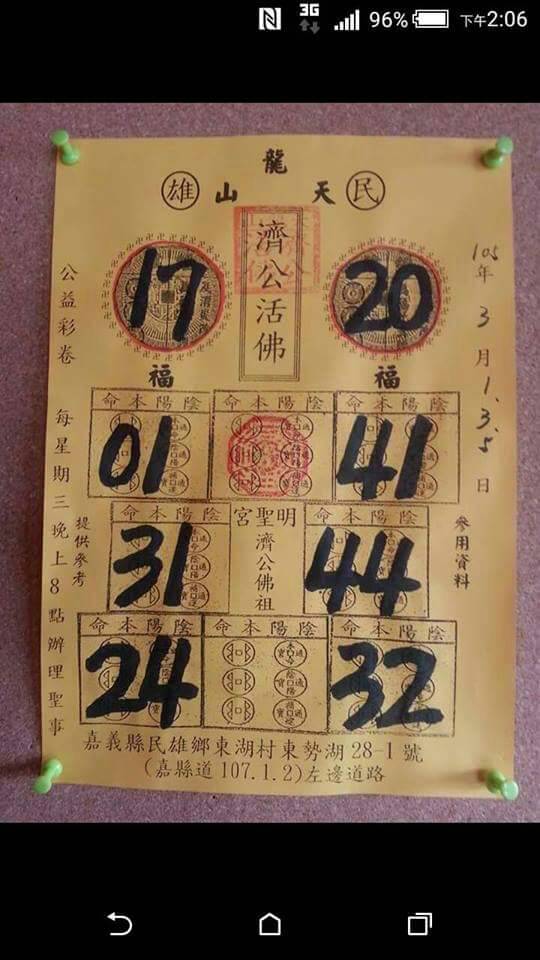 3G 96% 下午2:06
民天龍山雄
濟公活佛
17
20
福
福
105年3月1.3.5日
參用資料
公益彩卷 每星期三晚上8點辦理聖事
提供參考
陰陽本命
陰陽本命
陰陽本命
01
41
陰陽本命
明聖宮
陰陽本命
31
濟公佛祖
44
陰陽本命
陰陽本命
陰陽本命
24
32
嘉義縣民雄鄉東湖村東勢湖28-1號
(嘉縣道107.1.2)左邊道路